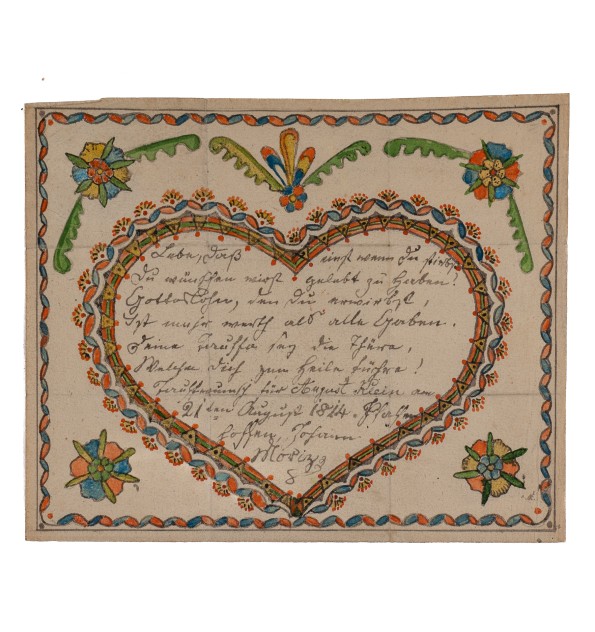 Lebe, daß einst wenn Du stirbst
Du wünschen wirst gelebt zu haben!
Gottes Lohn, den Du erwirbst,
Ist mehr werth als alle Gaben.
Deine Tauffe sey die Thüre,
Welche Dich zum Heile führe!
Taufwunsch für August Klein am
21ten August 1824.
hoffen, Johann
Moritz